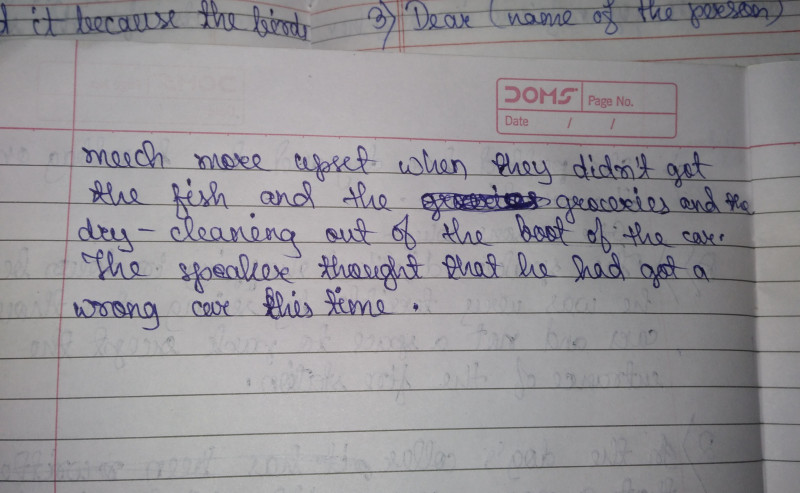 t it because the birds
3) Dear (name of the person)
DOMS Page No.
Date / /
much more upset when they didn't get
the fish and the groceries and the
dry-cleaning out of the boot of the car.
The speaker thought that he had got a
wrong car this time.